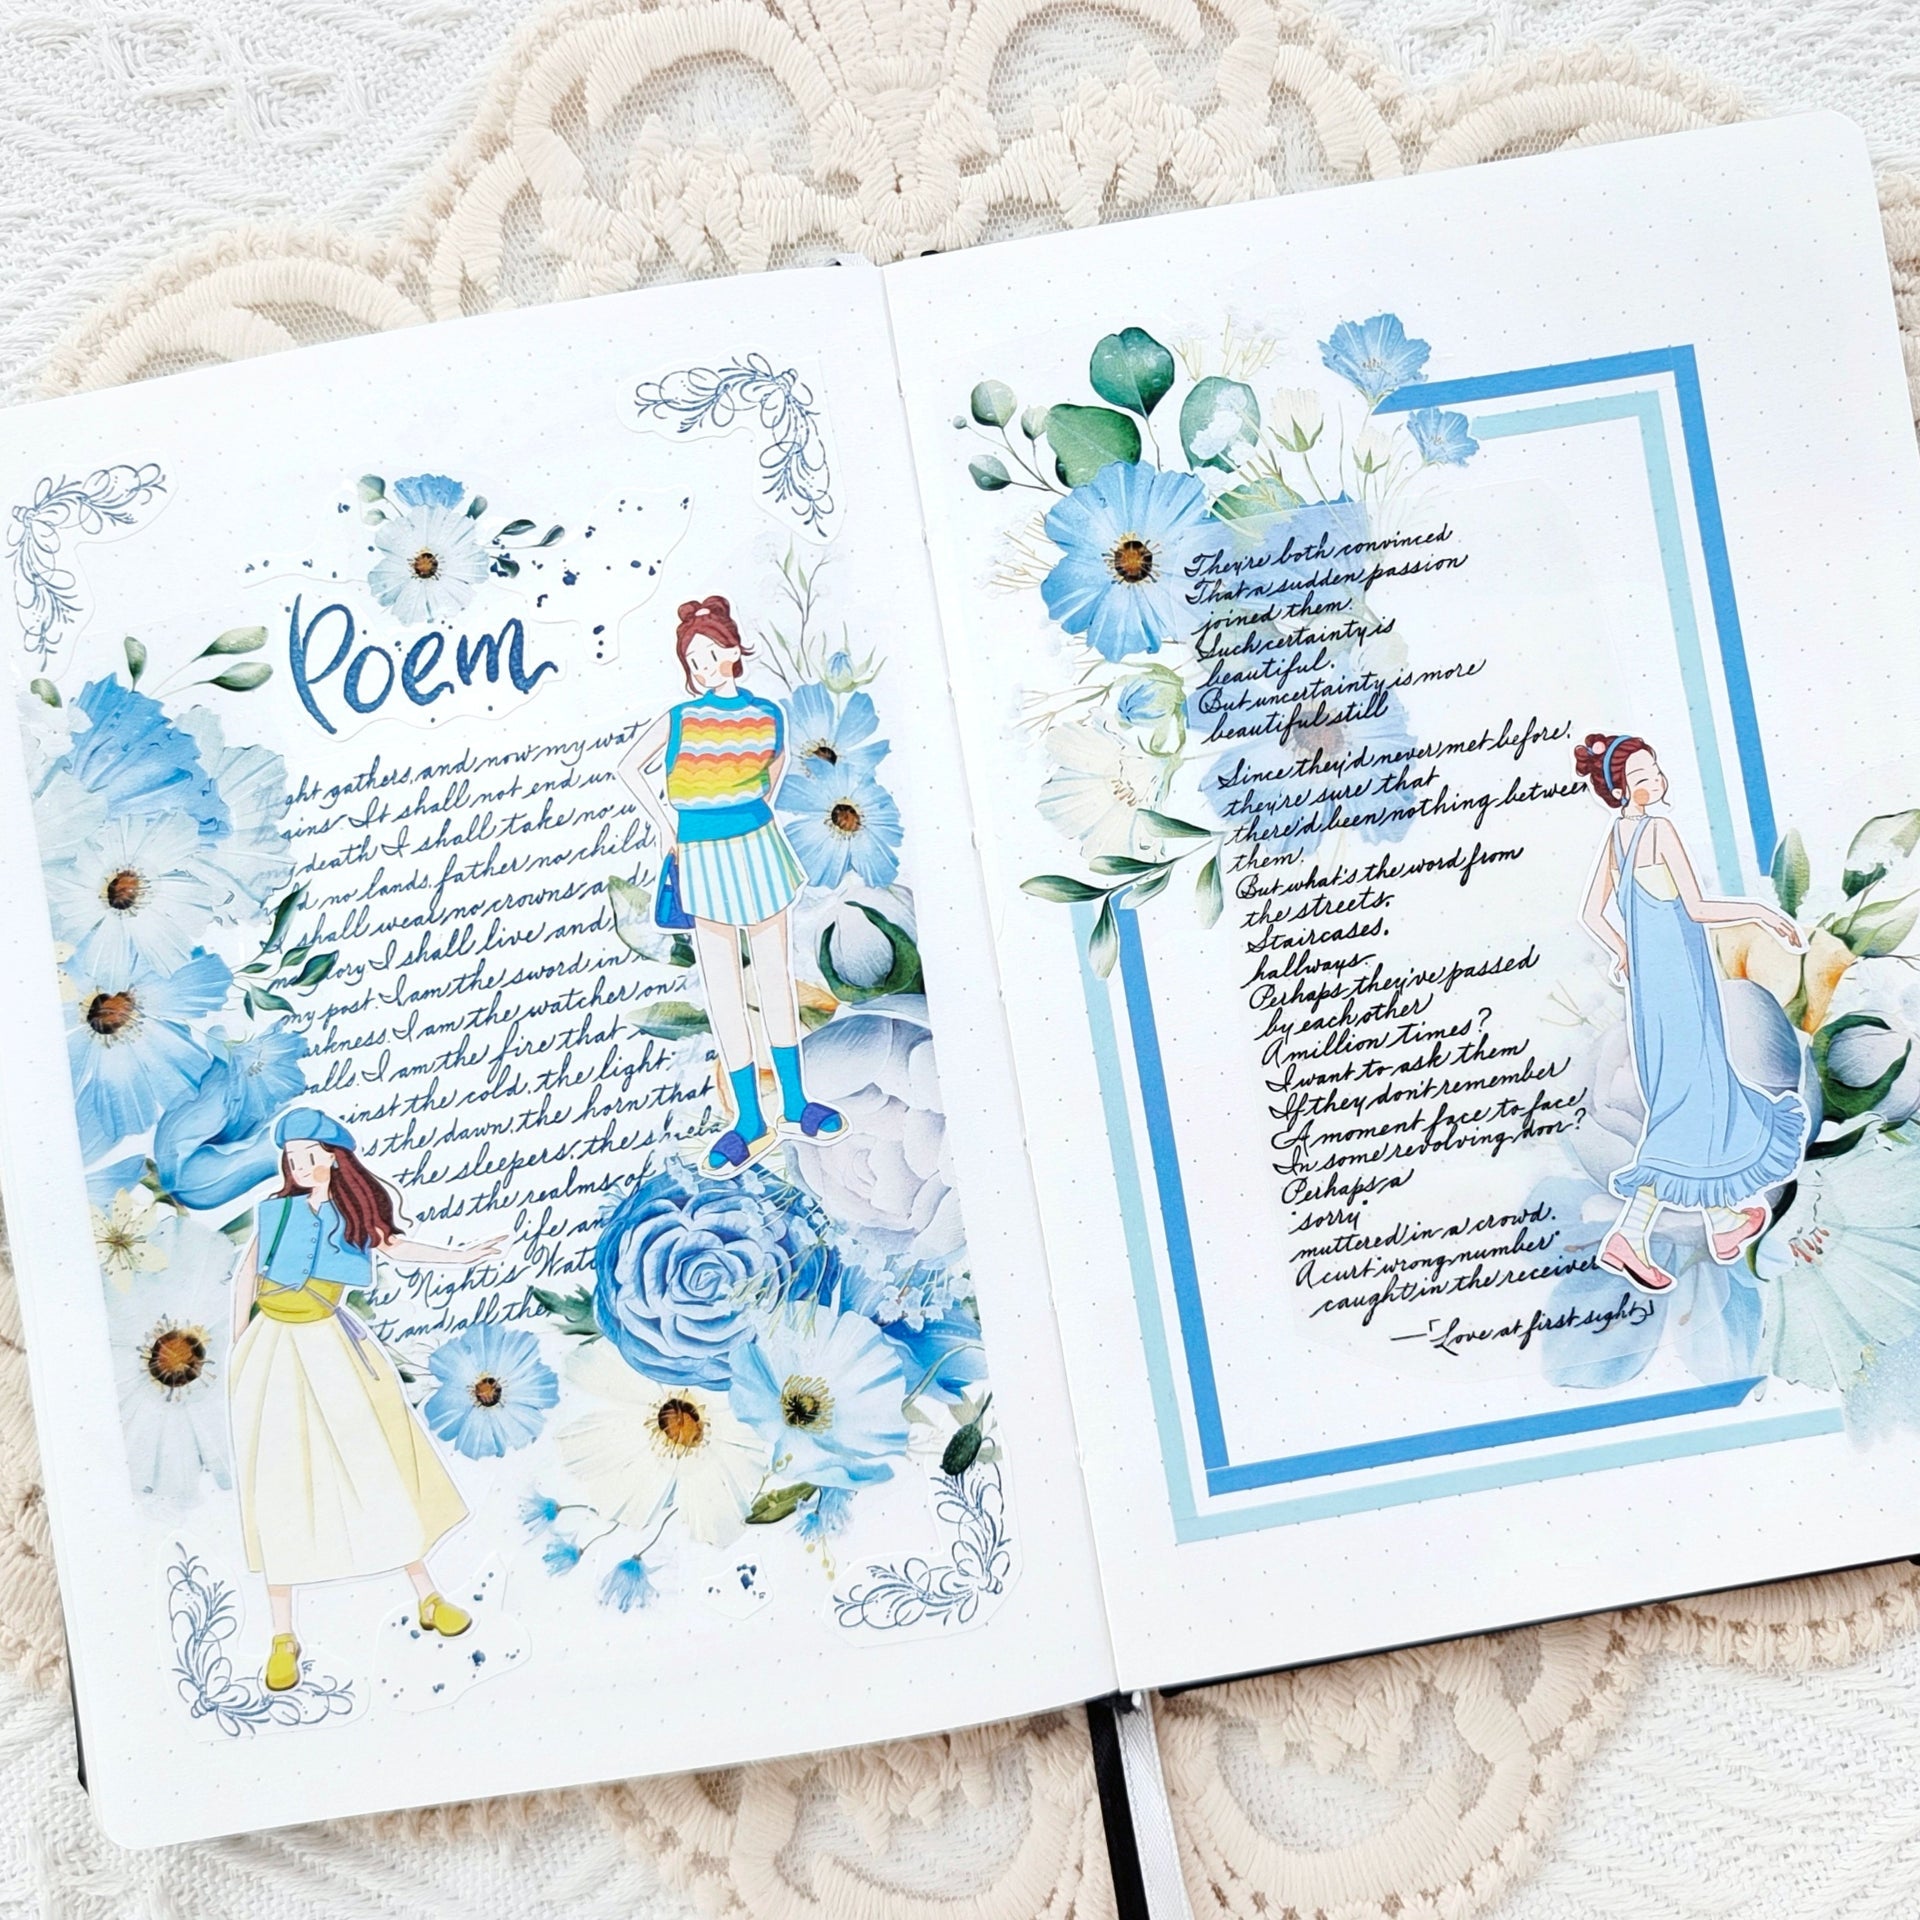 Poem
ght gathers, and now my wat
gins. It shall not end un
my death I shall take no w
d no lands, father no child
I shall wear no crowns and
no glory I shall live and d
my post. I am the sword in
arkness. I am the watcher on
walls. I am the fire that
inst the cold, the light a
s the dawn, the horn that
the sleepers, the shield
ards the realms of
life an
he Night's Watc
t and all the
They're both convinced
That a sudden passion
joined them.
Such certainty is
beautiful.
But uncertainty is more
beautiful still
Since they'd never met before,
they're sure that
there'd been nothing between
them.
But what's the word from
the streets,
Staircases,
hallways
Perhaps they've passed
by each other
A million times?
I want to ask them
If they don't remember
A moment face to face
In some revolving door?
Perhaps a
"sorry"
muttered in a crowd.
A curt "wrong number"
caught in the receiver
—「Love at first sight」